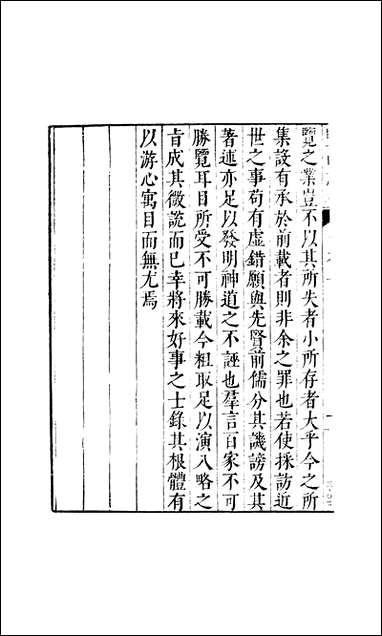 覽之業豈不以其所失者小所存者大乎今之所
集設有承於前載者則非余之罪也若使採訪近
世之事苟有虛錯願與先賢前儒分其譏謗及其
著述亦足以發明神道之不誣也羣言百家不可
勝覽耳目所受不可勝載今粗取足以演八略之
旨成其微說而已幸將來好事之士錄其根體有
以游心寓目而無尤焉